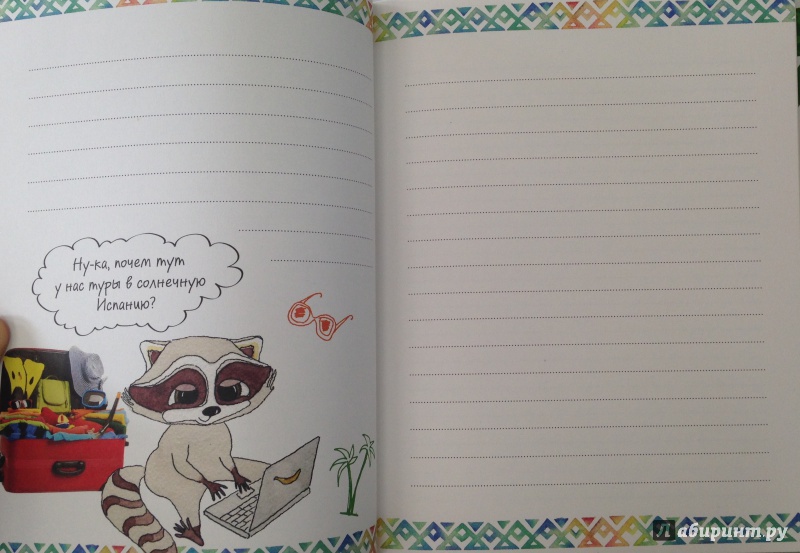 Ну-ка, почем тут
у нас туры в солнечную
Испанию?
Лабиринт.ру